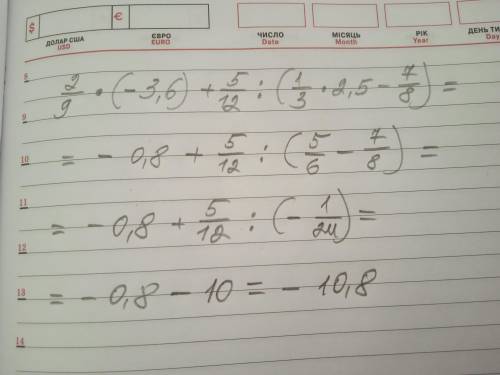 $ €
ДОЛАР США ЄВРО ЧИСЛО МІСЯЦЬ РІК ДЕНЬ ТИ
USD EURO Date Month Year Day
8
2/9 · (-3,6) + 5/12 : (1/3 · 2,5 - 7/8) =
9
10 = - 0,8 + 5/12 : (5/6 - 7/8) =
11
= - 0,8 + 5/12 : (- 1/24) =
12
13 = - 0,8 - 10 = - 10,8
14